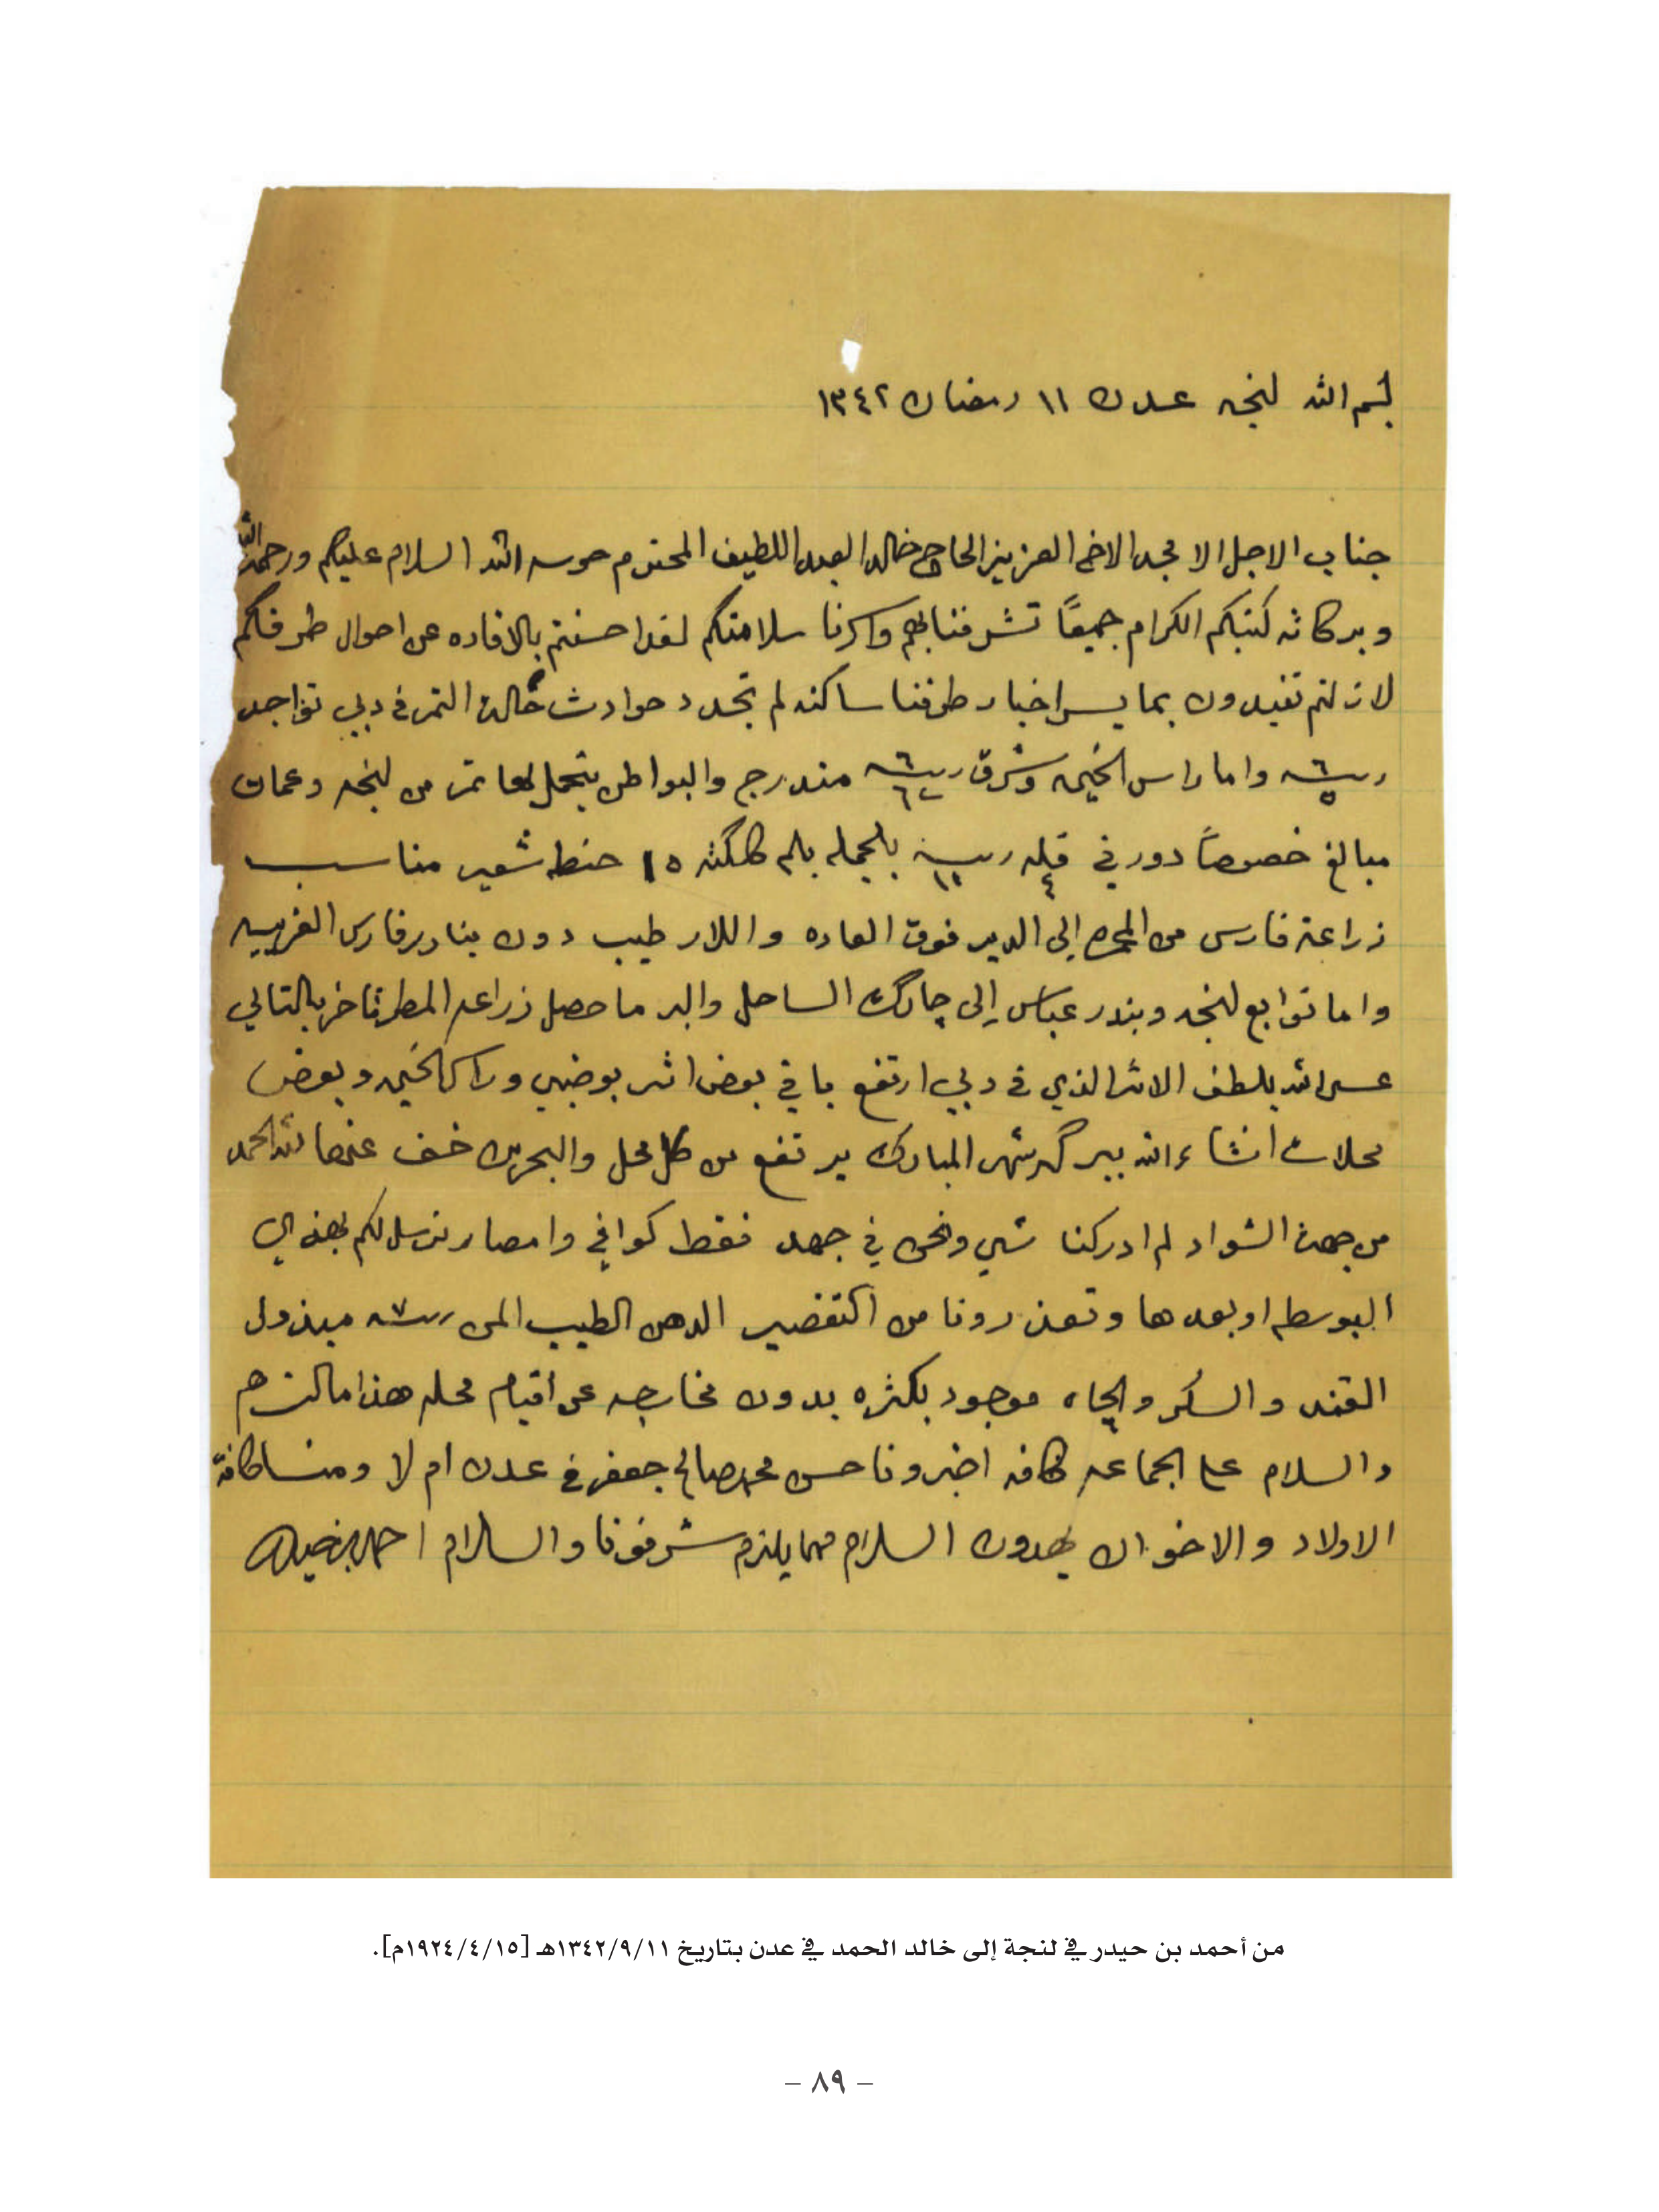 بسم الله لنجه عدن ١١ رمضان ١٣٤٢
جناب الاجل الامجد الاخ العزيز الحاج خالد العبداللطيف المحترم حرسه الله السلام عليكم ورحمة الله
وبركاته كتبكم الكرام جميعاً تشرفنا بهم واسرنا سلامتكم لقد احسنتم بالافاده عن احوال طرفكم
لا زلتم تفيدون بما يسر اخبار طرفنا ساكنه لم تجدد حوادث حالت التمر في دبي تواجد
ربيه ٦ واما راس الخيمه وشرق ربيه ٦ مندرج والبواطن يتحمل لها تمر من لنجه وعمان
مبالغ خصوصاً دور في قله بالجمله بلم كلكته ١٥ حنطه شعير مناسب
زراعة فارس من المحره الى الدير فوق العاده واللار طيب دون بنادر فارس الغربيه
واما توابع لنجه وبندر عباس إلى چارك الساحل والبر ما حصل زراعه المطر تاخر بالتالي
عسى الله يلطف الاثر الذي في دبي ارتفع باقي بعض اثر بوضبي وراس الخيمه وبعض
محلات انشاء الله ببركة شهر المبارك يرتفع من كل محل والبحرين خف عنها لله الحمد
من جهة الشواد لم ادركنا شي ونحن في جهد فقط كوافي وامصار نرسل لكم بهذه الى
البوسطه او بعدها وتعذرونا من التقصير الدهن الطيب المن ربيه ٧ مبذول
القند والسكر والچاه موجود بكثره بدون مخارجه عن اقيام محله هذا ما لزم
والسلام على الجماعه كافه اخبرونا حسن محمد صالح جعفر في عدن ام لا ومنا كافة
الاولاد والاخوان يهدون السلام مهما يلزم شرفونا والسلام احمد بن حيدر
من أحمد بن حيدر في لنجة إلى خالد الحمد في عدن بتاريخ ١٣٤٢/٩/١١هـ [١٩٢٤/٤/١٥م].
– ٨٩ –